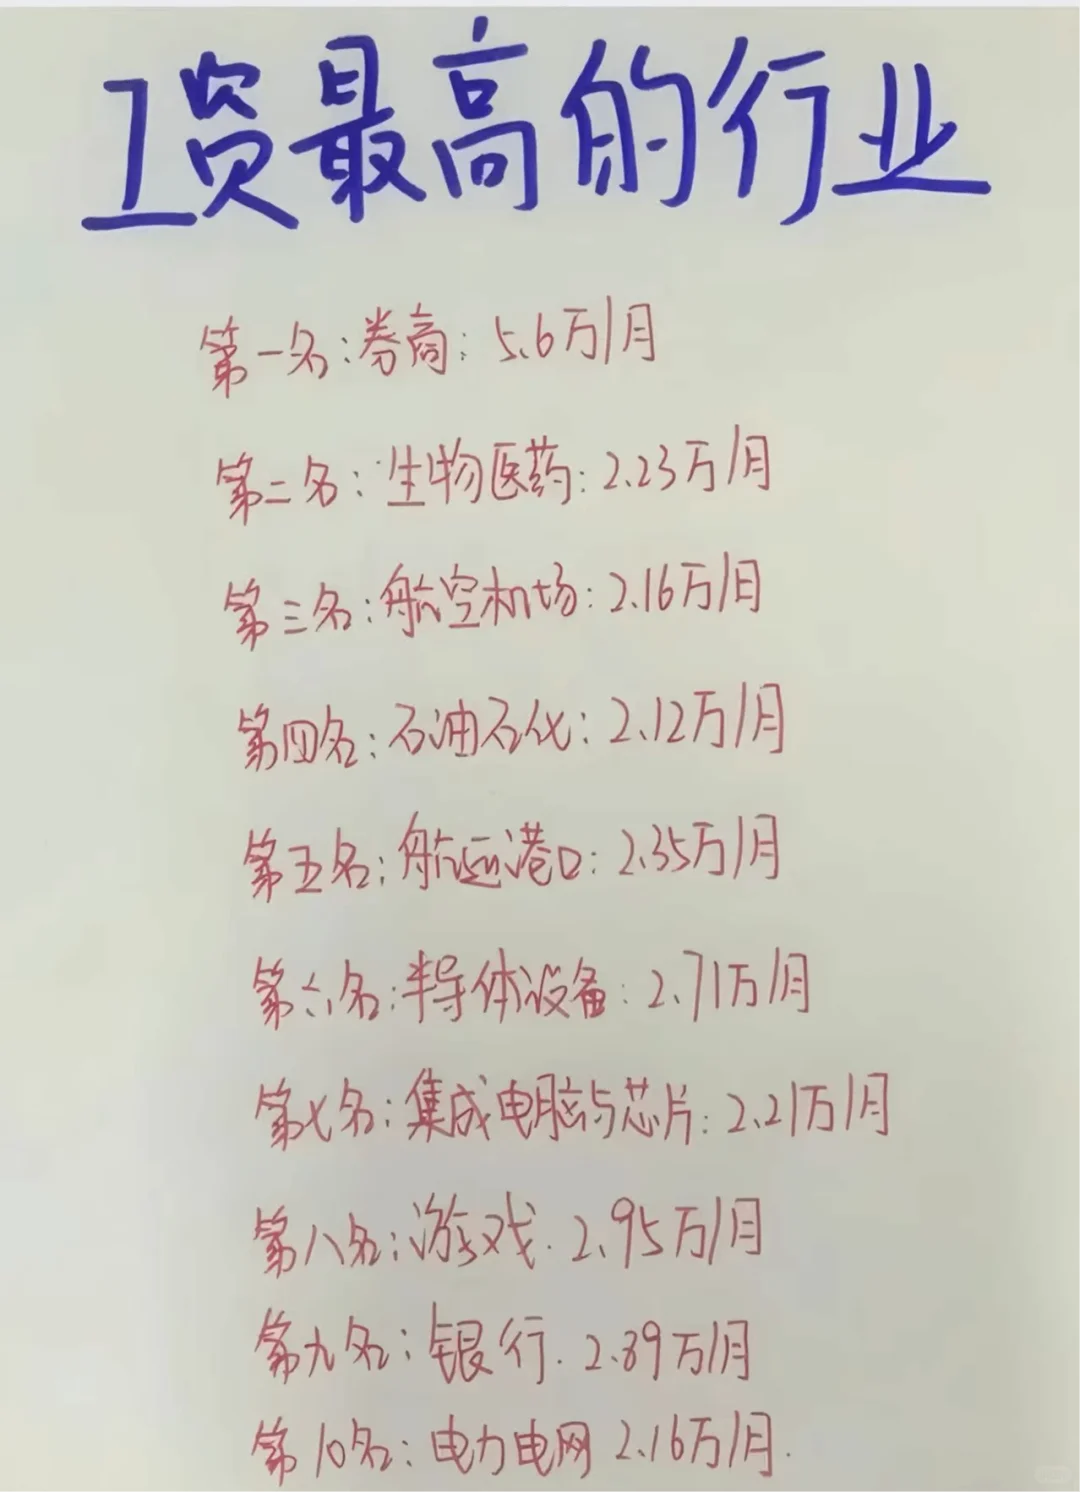 工资最高的行业
第一名:券商:5.6万/月
第二名:生物医药:2.23万/月
第三名:航空机场:2.16万/月
第四名:石油石化:2.12万/月
第五名:航运港口:2.35万/月
第六名:半导体设备:2.71万/月
第七名:集成电脑与芯片:2.21万/月
第八名:游戏.2.95万/月
第九名:银行.2.89万/月
第10名:电力电网 2.16万/月.